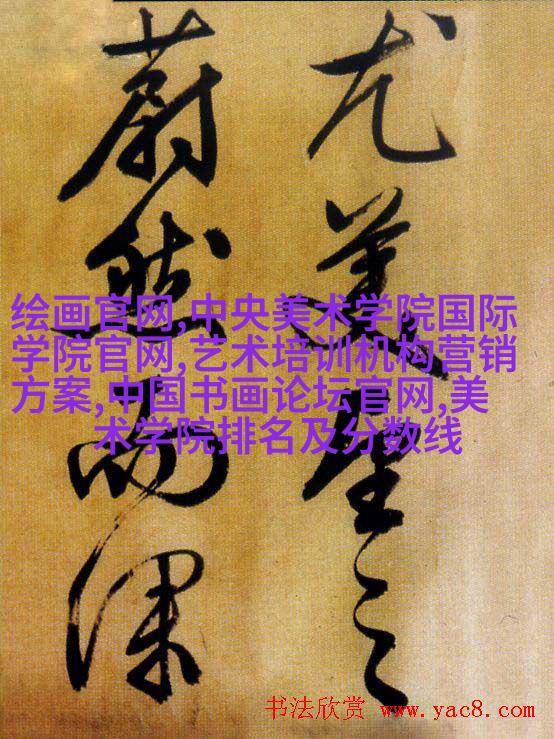 尤美望之
蔚然而深
绘画官网,中央美术学院国际
学院官网,艺术培训机构营销
方案,中国书画论坛官网,美
术学院排名及分数线
书法欣赏 www.yac8.com